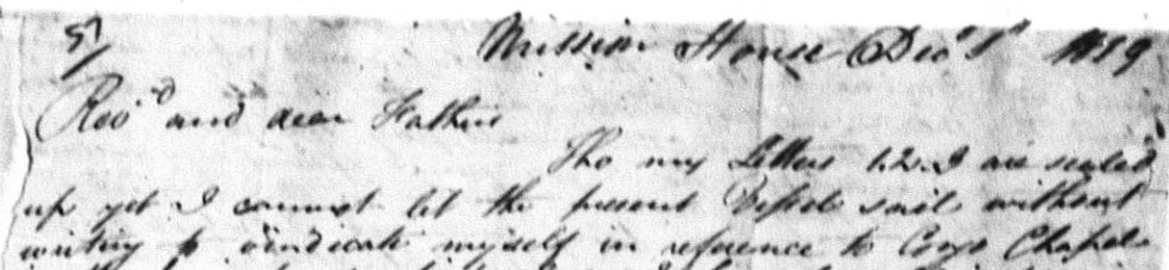 Mission House Dec 1st 1819
Revd and dear Fathers
Tho my Letters 1.2.3 are sealed
up yet I cannot let the present Vessel sail without
writing to vindicate myself in reference to Chapel